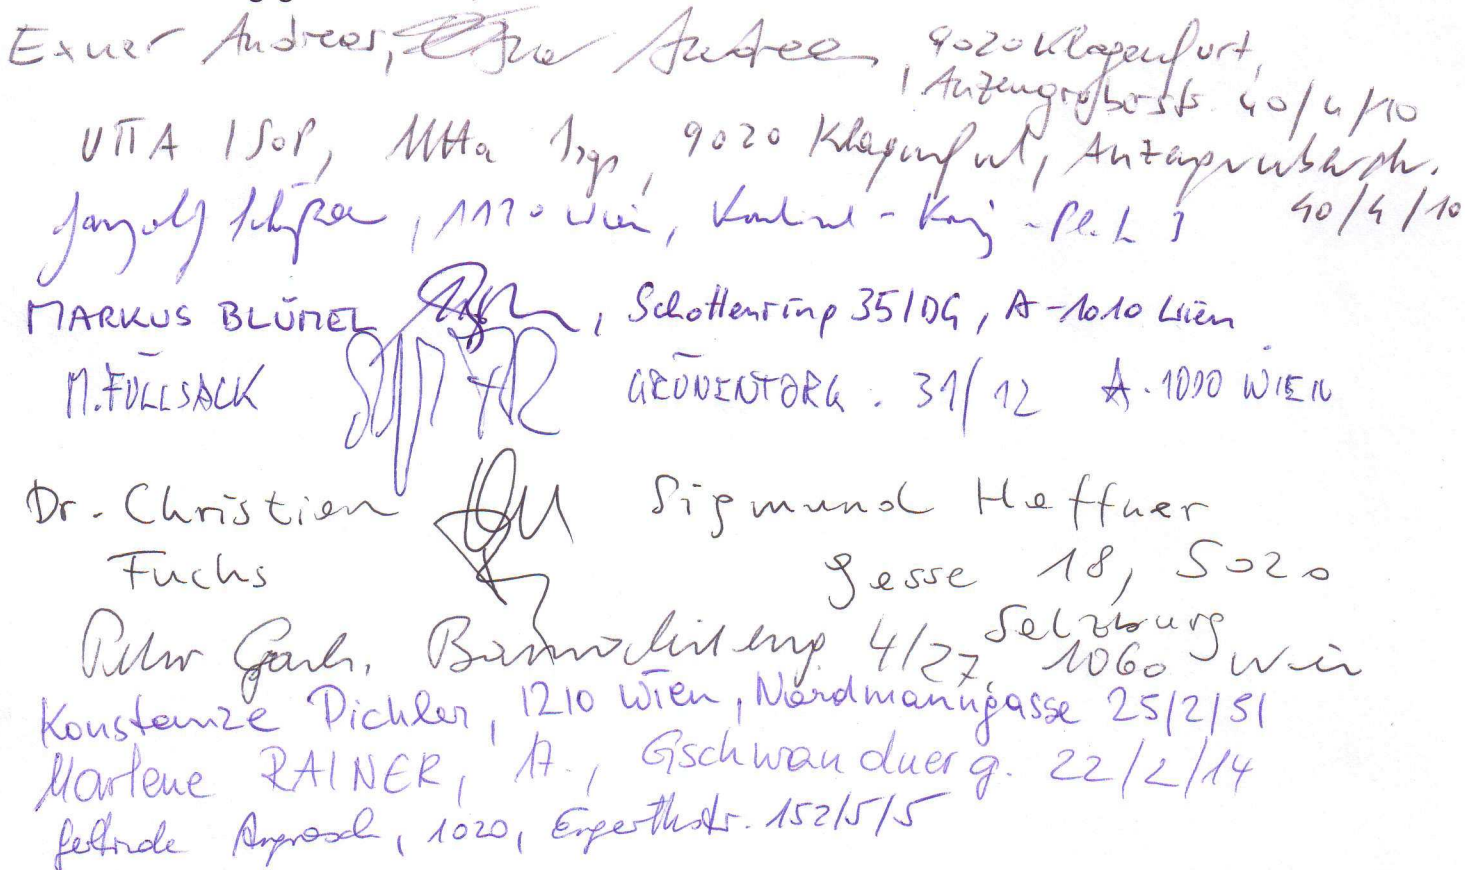 Exner Andreas, Andreas, 9020 Klagenfurt,
Anzengruberstr. 40/4/10
UTTA ISOP, Utta Isop, 9020 Klagenfurt, Anzengruberstr.
40/4/10
1120 Wien, - Pl. 3
MARKUS BLÜMEL, Schottenring 35/DG, A-1010 Wien
M. FÜLLSACK GRÜNENTORG. 31/12 A-1090 WIEN
Dr. Christian Sigmund Haffner
Fuchs gasse 18, 5020
Salzburg
4/27, 1060 Wien
Konstanze Pichler, 1210 Wien, Nordmanngasse 25/2/51
Marlene RAINER, 17., Gschwandnerg. 22/2/14
1020, Engerthstr. 152/5/5